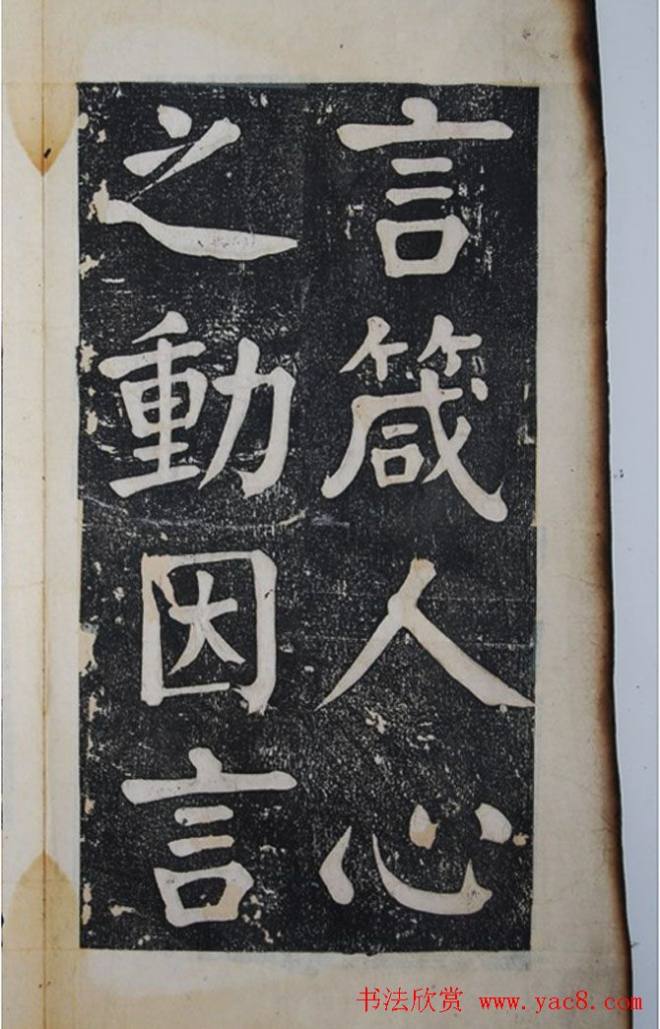 言箴人心
之動因言
书法欣赏 www.yac8.com